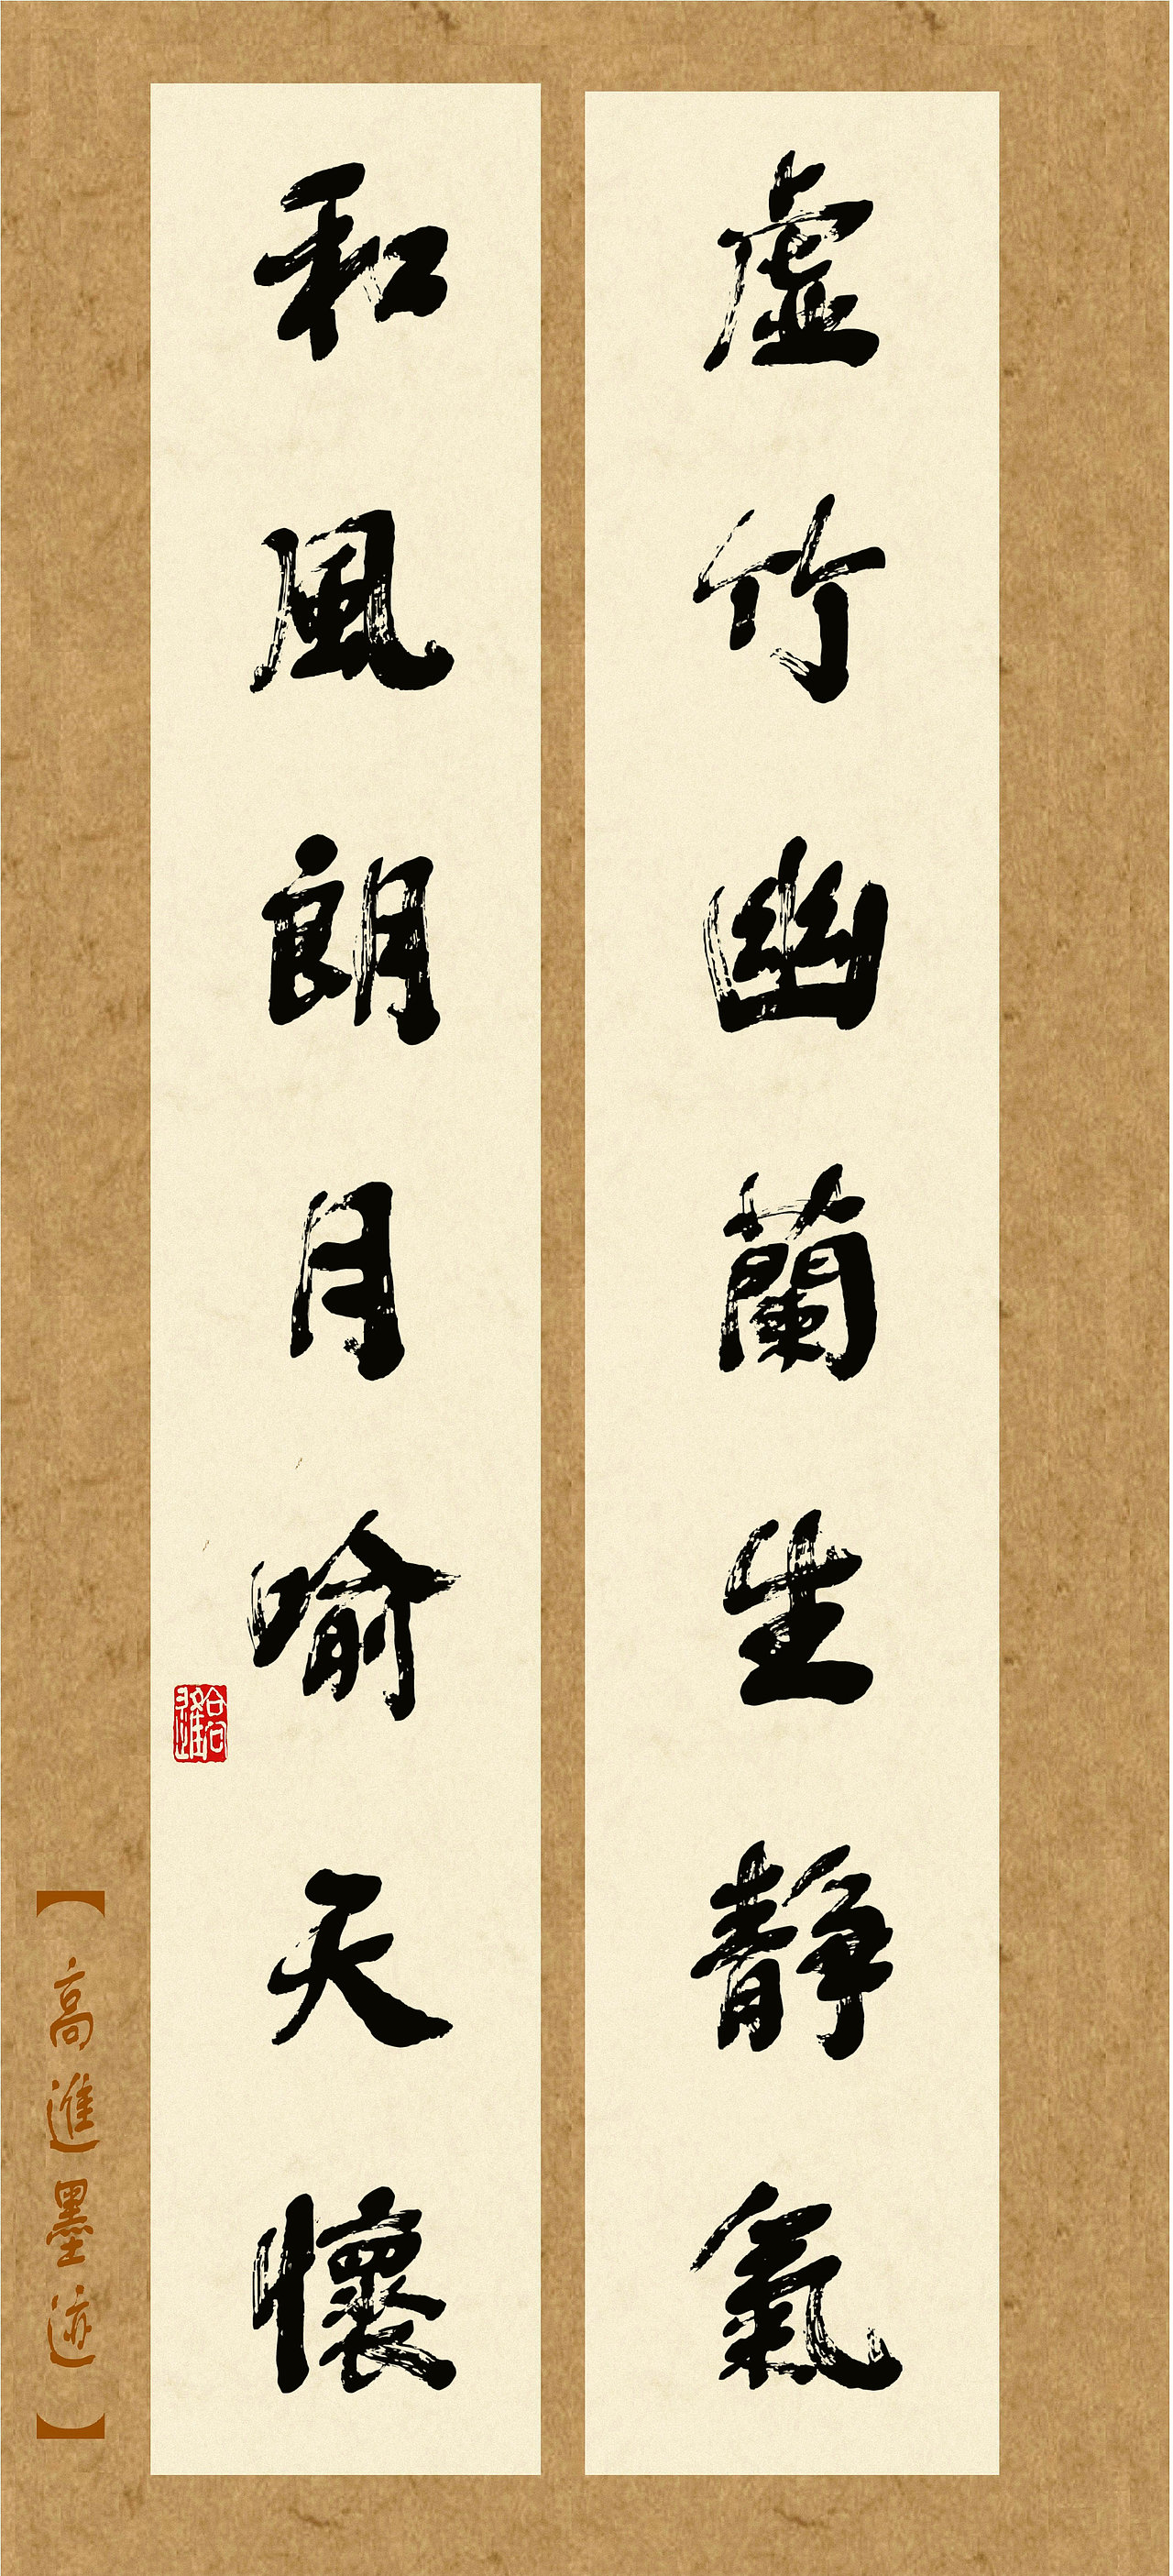 虛竹幽蘭生靜氣
和風朗月喻天懷
【高進墨迹】